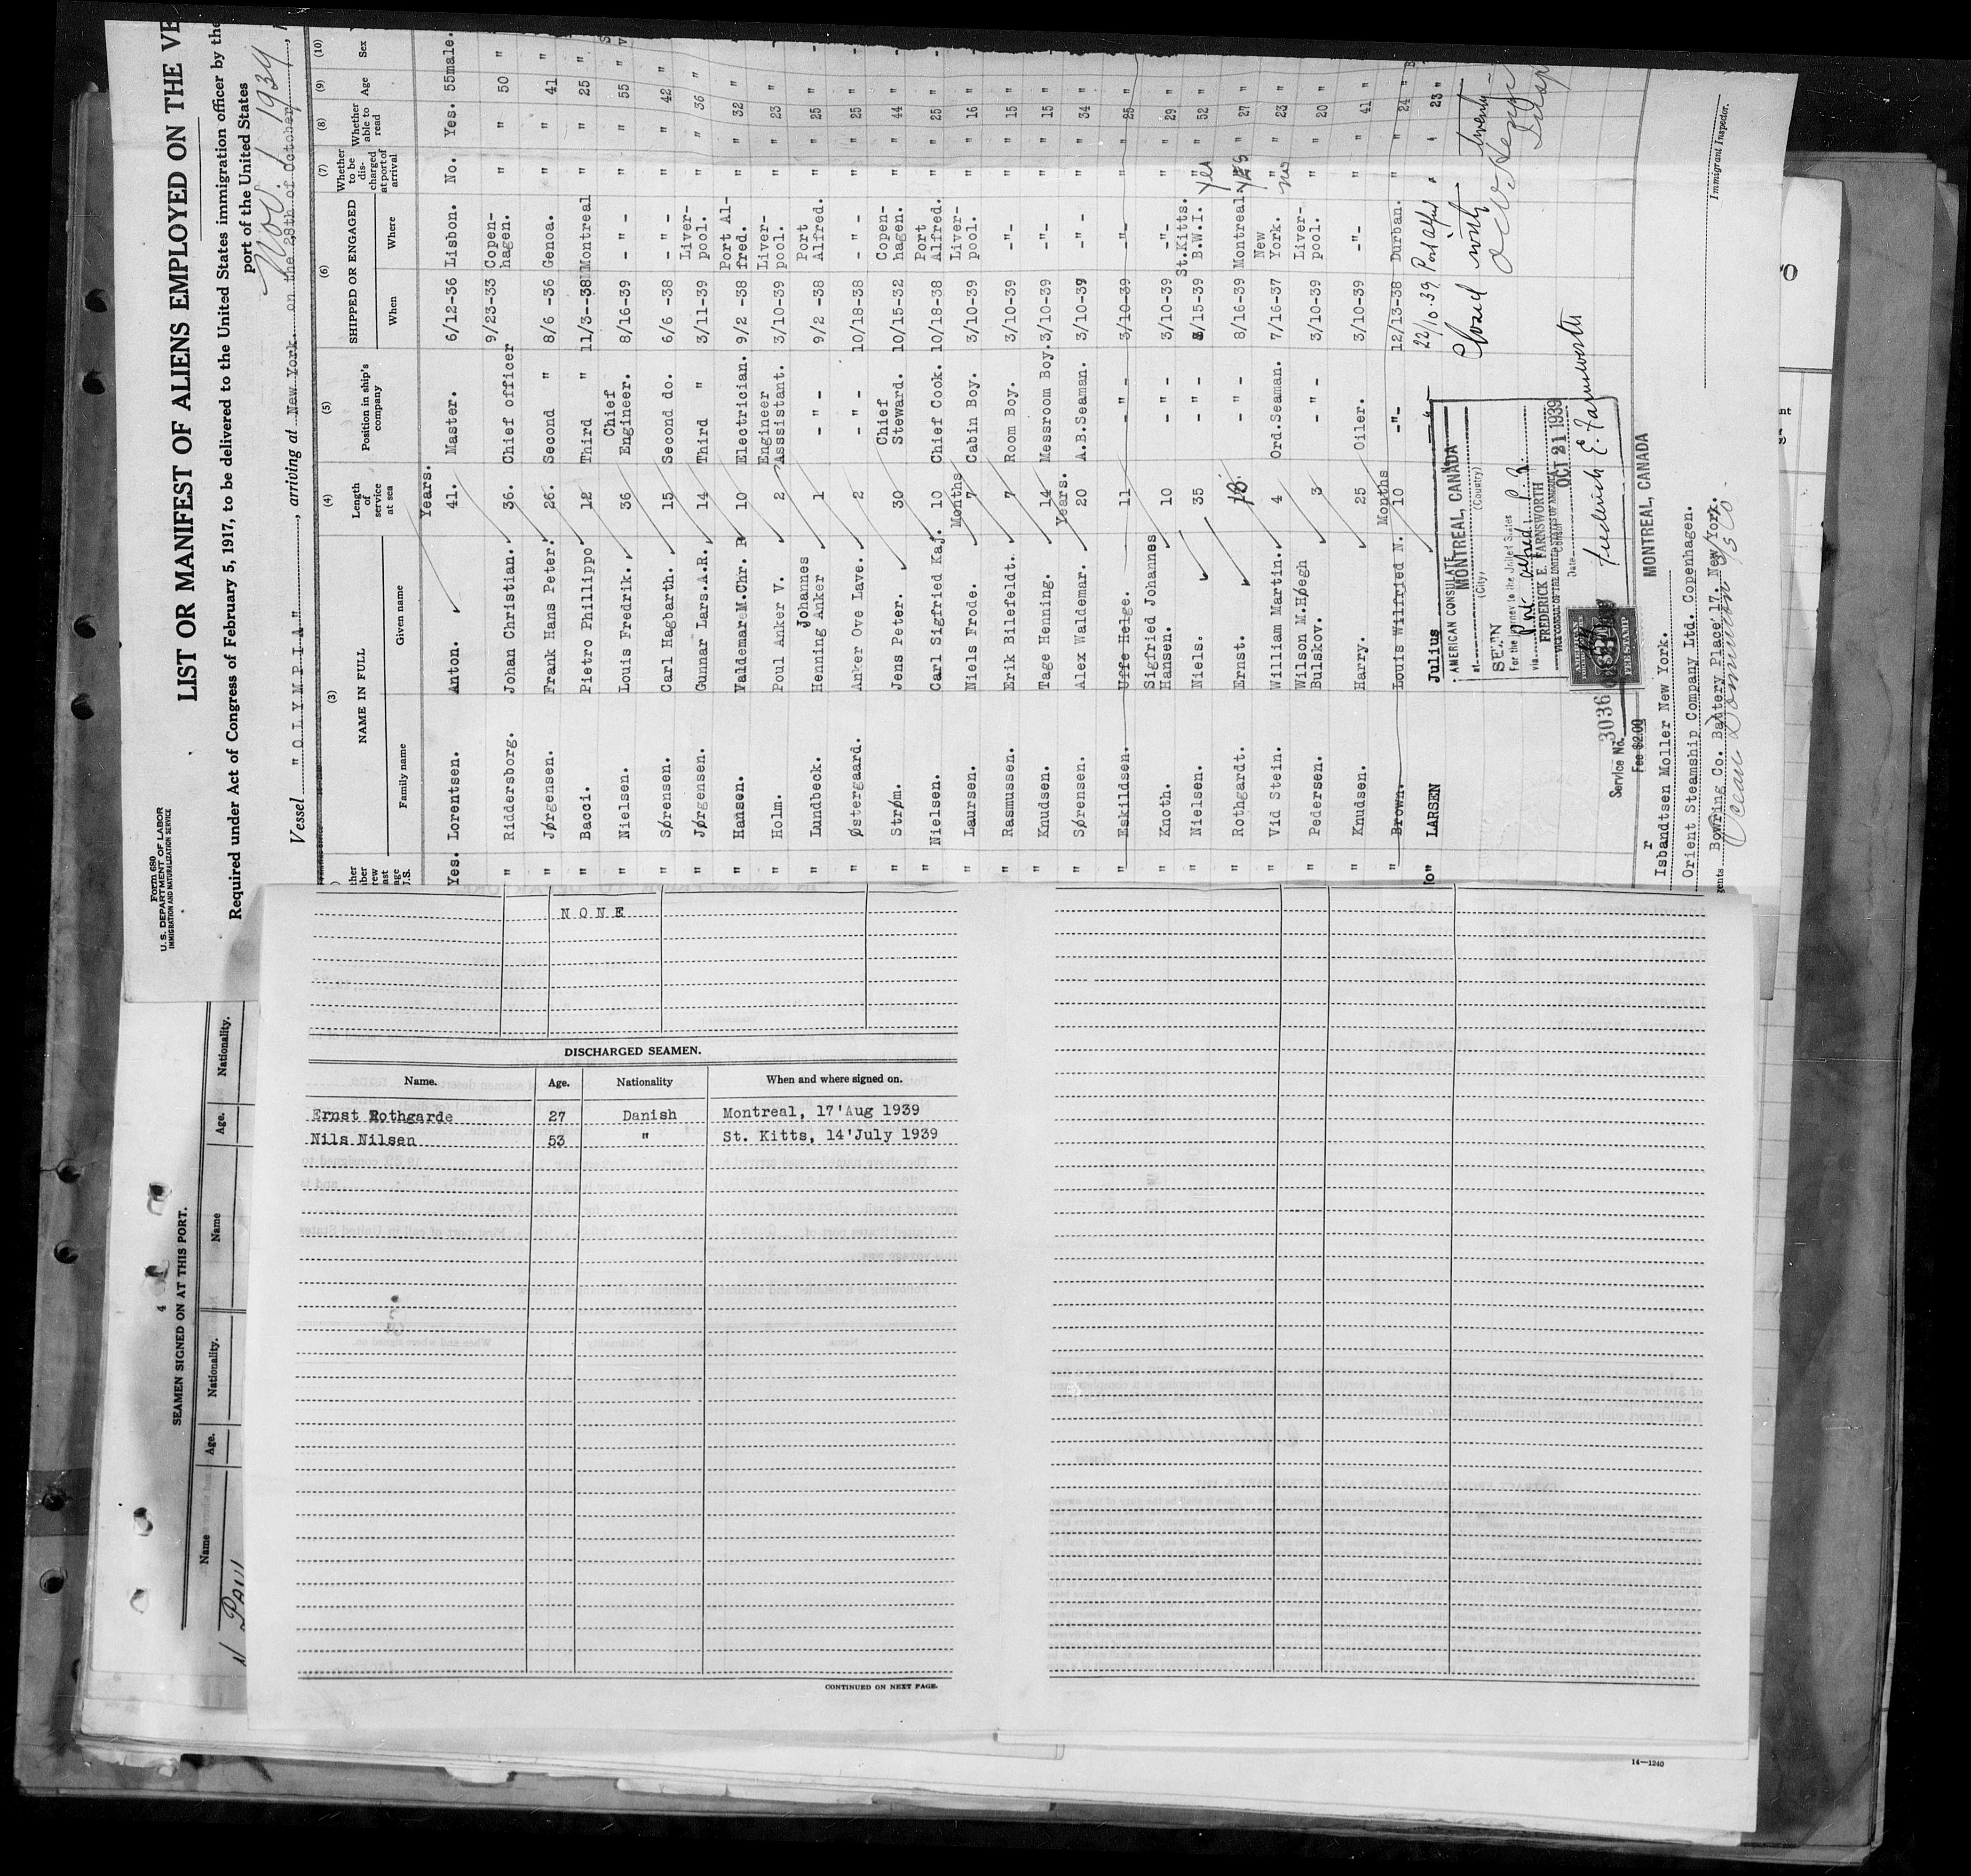 Form 680
U. S. DEPARTMENT OF LABOR
IMMIGRATION AND NATURALIZATION SERVICE
LIST OR MANIFEST OF ALIENS EMPLOYED ON THE VE
Required under Act of Congress of February 5, 1917, to be delivered to the United States immigration officer by the
port of the United States
Nov. 1 1939
Vessel " O L Y M P I A ", arriving at New York. on the 28th of October,
(3) (4) (5) (6) (7) (8) (9) (10)
NAME IN FULL
Family name Given name
Length of service at sea
Position in ship's company
SHIPPED OR ENGAGED
When Where
Whether to be discharged at port of arrival
Whether able to read
Age
Sex
Years.
Yes. Lorentsen. Anton. 41. Master. 6/12-36 Lisbon. No. Yes. 55 male.
" Riddersborg. Johan Christian. 36. Chief officer 9/23-33 Copen-hagen. " " 50 "
" Jørgensen. Frank Hans Peter. 26. Second " 8/6 -36 Genoa. " " 41 "
" Bacci. Pietro Phillippo 12 Third " 11/3--38 Montreal " " 25 "
" Nielsen. Louis Fredrik. 36 Chief Engineer. 8/16-39 - " - " " 55 "
" Sørensen. Carl Hagbarth. 15 Second do. 6/6 -38 - " - " " 42 "
" Jørgensen. Gunnar Lars.A.R. 14 Third " 3/11-39 Liver-pool. " " 36 "
" Hansen. Valdemar M.Chr. 10 Electrician. 9/2 -38 Port Al-fred. " " 32 "
" Holm. Poul Anker V. 2 Engineer Asssistant. 3/10-39 Liver-pool. " " 23 "
" Lundbeck. Johannes Henning Anker 1 - " - 9/2 -38 Port Alfred. " " 25 "
" Østergaard. Anker Ove Lave. 2 - " - 10/18-38 - " - " " 25 "
" Strøm. Jens Peter. 30 Chief Steward. 10/15-32 Copen-hagen. " " 44 "
" Nielsen. Carl Sigfried Kaj. 10 Chief Cook. 10/18-38 Port Alfred. " " 25 "
" Laursen. Niels Frode. Months 7 Cabin Boy. 3/10-39 Liver-pool. " " 16 "
" Rasmussen. Erik Bilefeldt. 7 Room Boy. 3/10-39 -"- " " 15 "
" Knudsen. Tage Henning. 14 Messroom Boy. 3/10-39 -"- " " 15 "
" Sørensen. Alex Waldemar. Years. 20 A.B.Seaman. 3/10-39 -"- " " 34 "
" Eskildsen. Uffe Helge. 11 - " - 3/10-39 -"- " " 25 "
" Knoth. Sigfried Johannes Hansen. 10 - " - 3/10-39 -"- " " 29 "
" Nielsen. Niels. 35 - " - /15-39 St.Kitts. B.W.I. " Yes " 52 "
" Rothgardt. Ernst. - " - 8/16-39 Montreal Yes " 27 "
" Vid Stein. William Martin. 4 Ord.Seaman. 7/16-37 New York. " " 23 "
" Pedersen. Wilson M.Høegh Bulskov. 3 - " - 3/10-39 Liver-pool. " " 20 "
" Knudsen. Harry. 25 Oiler. 3/10-39 -"- " " 41 "
" Brown. Louis Wilfried N. Months 10 -"- 12/13-38 Durban. " " 24 "
LARSEN Julius 22/10.39 Port Alfred " " 23 "
Closed with twenty-
AMERICAN CONSULATE
at MONTREAL, CANADA
(City) (Country)
SEEN
For the journey to the United States
via Port Alfred, P.Q.
FREDERICK E. FARNSWORTH
VICE CONSUL OF THE UNITED STATES OF AMERICA
Date OCT 21 1939
Frederick E. Farnsworth
AMERICAN
FEE STAMP
Service No. 3036
Fee $2.00
MONTREAL, CANADA
Isbandtsen Moller New York.
Orient Steamship Company Ltd. Copenhagen.
Bowring Co. Battery Place 17. New York.
Ocean Dominion SS Co.
Immigrant Inspector.
NONE
DISCHARGED SEAMEN.
Name. Age. Nationality When and where signed on.
Ernst Rothgarde 27 Danish Montreal, 17'Aug 1939
Nils Nilsen 53 " St. Kitts, 14'July 1939
CONTINUED ON NEXT PAGE.
14—1240
4
SEAMEN SIGNED ON AT THIS PORT.
Name Age. Nationality. Name Age. Nationality.